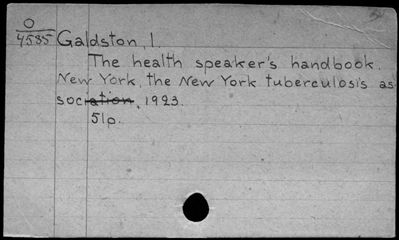 O
4535
Galdston, I
The health speaker's handbook.
New York, the New York tuberculosis as
sociation, 1923.
51p.